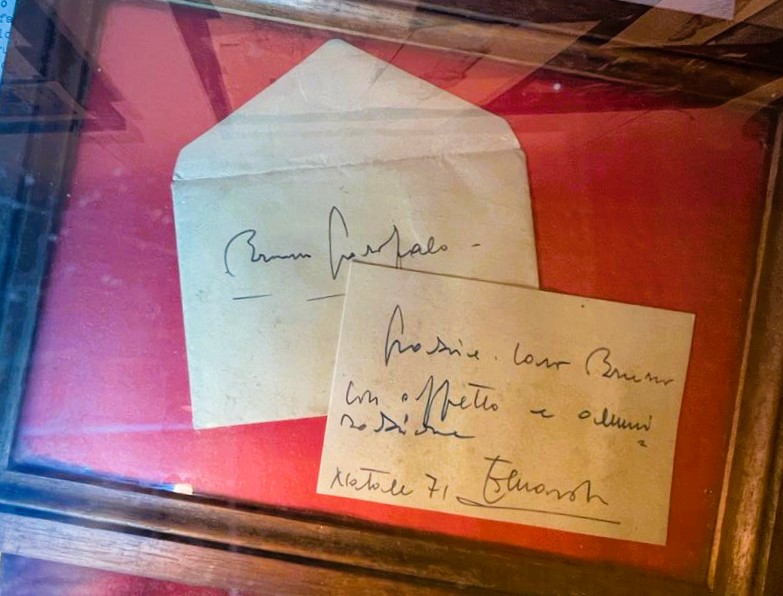 Bruno Garofalo -
Grazie. Caro Bruno
con affetto e ammi
razione
Natale 71 Eduardo